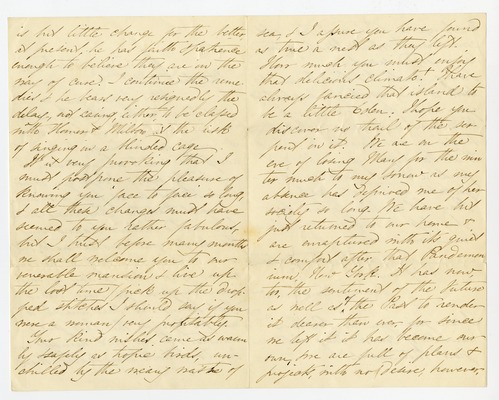 is but little change for the better
at present, he has faith & patience
enough to believe they are in the
way of cure. I continue the reme
dies & he bears very resignedly the
delay, not caring either to be classed
with Homer & Milton or the risk
of singing in a blinded cage
It is very provoking that I
must postpone the pleasure of
knowing you face to face so long,
& all these changes must have
seemed to you rather fabulous,
but I trust before many months
we shall welcome you to our
venerable mansion & live up
the lost time, pick up the drop-
ped stitches I should say if you
were a woman, very profitably.
Your kind wishes came as warm
ly & safely as tropic birds, un-
chilled by the weary waste of
sea, & I assure you have found
as true a nest as they left.
How much you must enjoy
that delicious climate! I have
always fancied that island to
be a little Eden. I hope you
discover no trail of the ser
pent in it. We are on the
eve of losing Mary for the win
ter much to my sorrow as my
absence has deprived me of her
society so long. We have but
just returned to our home &
are enraptured with its quiet
& comfort after that Pandemon
ium, New York. It has now
too, the sentiment of the future
as well as the Past to render
it dearer than ever, for since
we left it it has become our
own, we are full of plans &
projects, with no desire, however,